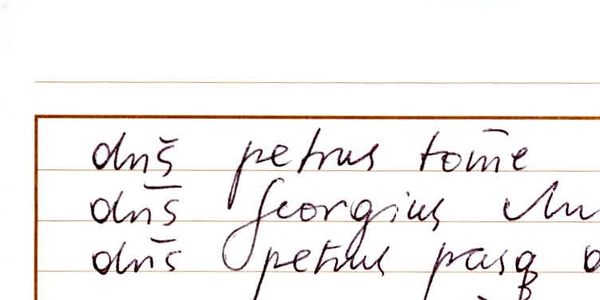 dnš petrus tom̄e
dns̄ Georgius
dns̄ petrus pasq